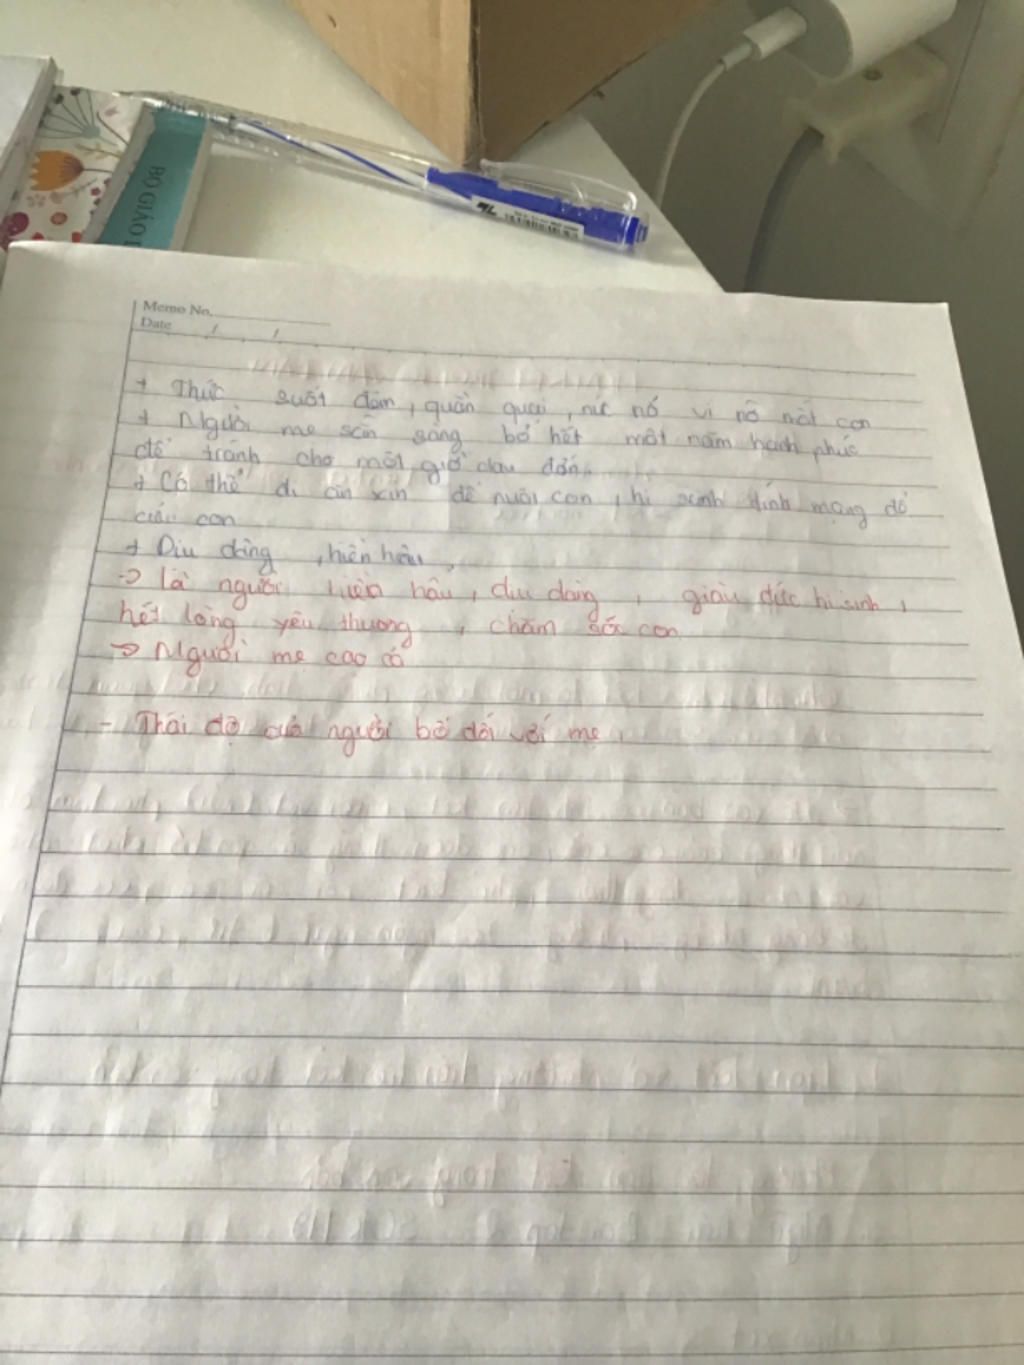 BỘ GIÁO D
Memo No.
Date / /
+ Thức suốt đêm, quằn quại, nức nở vì nỗ mất con
+ Người mẹ sẵn sàng bỏ hết một năm hạnh phúc
để tránh cho một giờ đau đớn
+ Có thể đi ăn xin để nuôi con, hi sinh tính mạng để
cứu con
+ Dịu dàng, hiền hậu,
-> là người hiền hậu, dịu dàng, giàu đức hi sinh,
hết lòng yêu thương, chăm sóc con
-> Người mẹ cao cả
- Thái độ của người bố đối với mẹ,